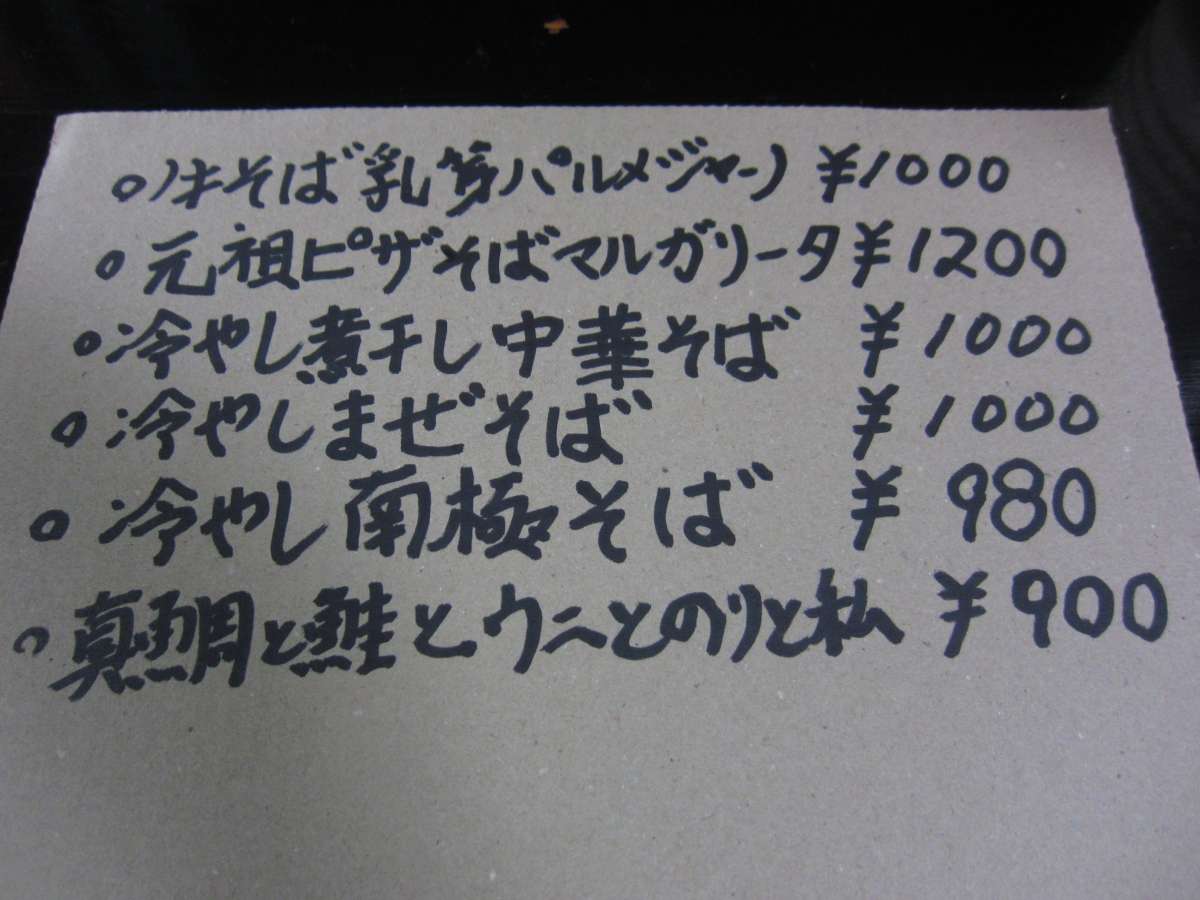 ○そば乳パルメジャーノ ¥1000
○元祖ピザそばマルガリータ ¥1200
○冷やし煮干し中華そば ¥1000
○冷やしまぜそば ¥1000
○冷やし南極そば ¥980
○真鯛と鮭とウニとのりと私 ¥900